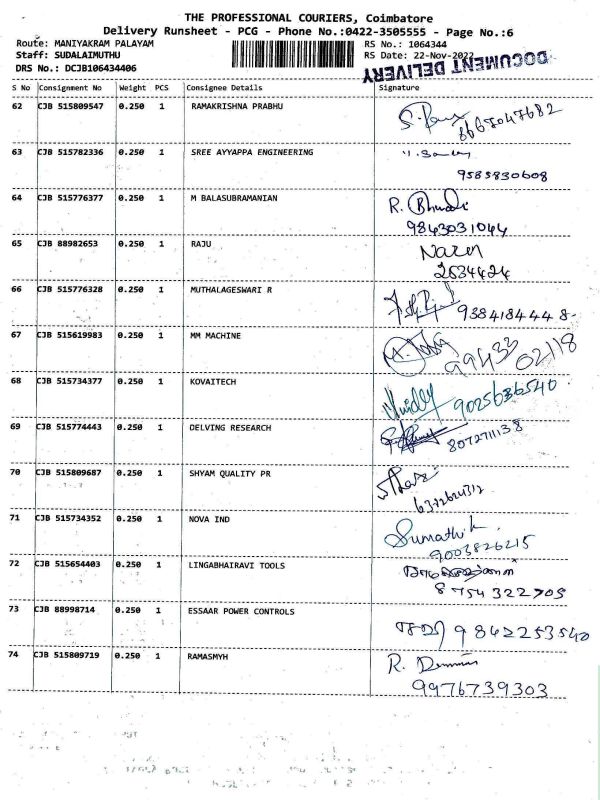 THE PROFESSIONAL COURIERS, Coimbatore
Delivery Runsheet - PCG - Phone No.:0422-3505555 - Page No.:6
Route: MANIYAKRAM PALAYAM RS No.: 1064344
Staff: SUDALAIMUTHU RS Date: 22-Nov-2022
DOCUMENT DELIVERY
DRS No.: DCJB106434406
S No Consignment No Weight PCS Consignee Details Signature
62 CJB 515809547 0.250 1 RAMAKRISHNA PRABHU
8667047682
63 CJB 515782336 0.250 1 SREE AYYAPPA ENGINEERING
9585830608
64 CJB 515776377 0.250 1 M BALASUBRAMANIAN R.
9843031044
65 CJB 88982653 0.250 1 RAJU Naren
2634424
66 CJB 515776328 0.250 1 MUTHALAGESWARI R
9384184448
67 CJB 515619983 0.250 1 MM MACHINE
9943202118
68 CJB 515734377 0.250 1 KOVAITECH
9025636540
69 CJB 515774443 0.250 1 DELVING RESEARCH
8072711138
70 CJB 515809687 0.250 1 SHYAM QUALITY PR
6372624312
71 CJB 515734352 0.250 1 NOVA IND Sumathi K
9003826215
72 CJB 515654403 0.250 1 LINGABHAIRAVI TOOLS
8754322705
73 CJB 88998714 0.250 1 ESSAAR POWER CONTROLS
9842253540
74 CJB 515809719 0.250 1 RAMASMYH R.
9976739303